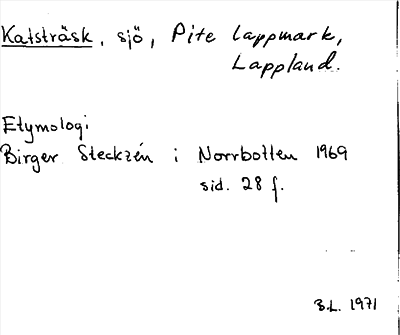 Katsträsk, sjö, Pite lappmark,
Lappland.
Etymologi
Birger Steckzén i Norrbotten 1969
sid. 28 f.
B.L. 1971